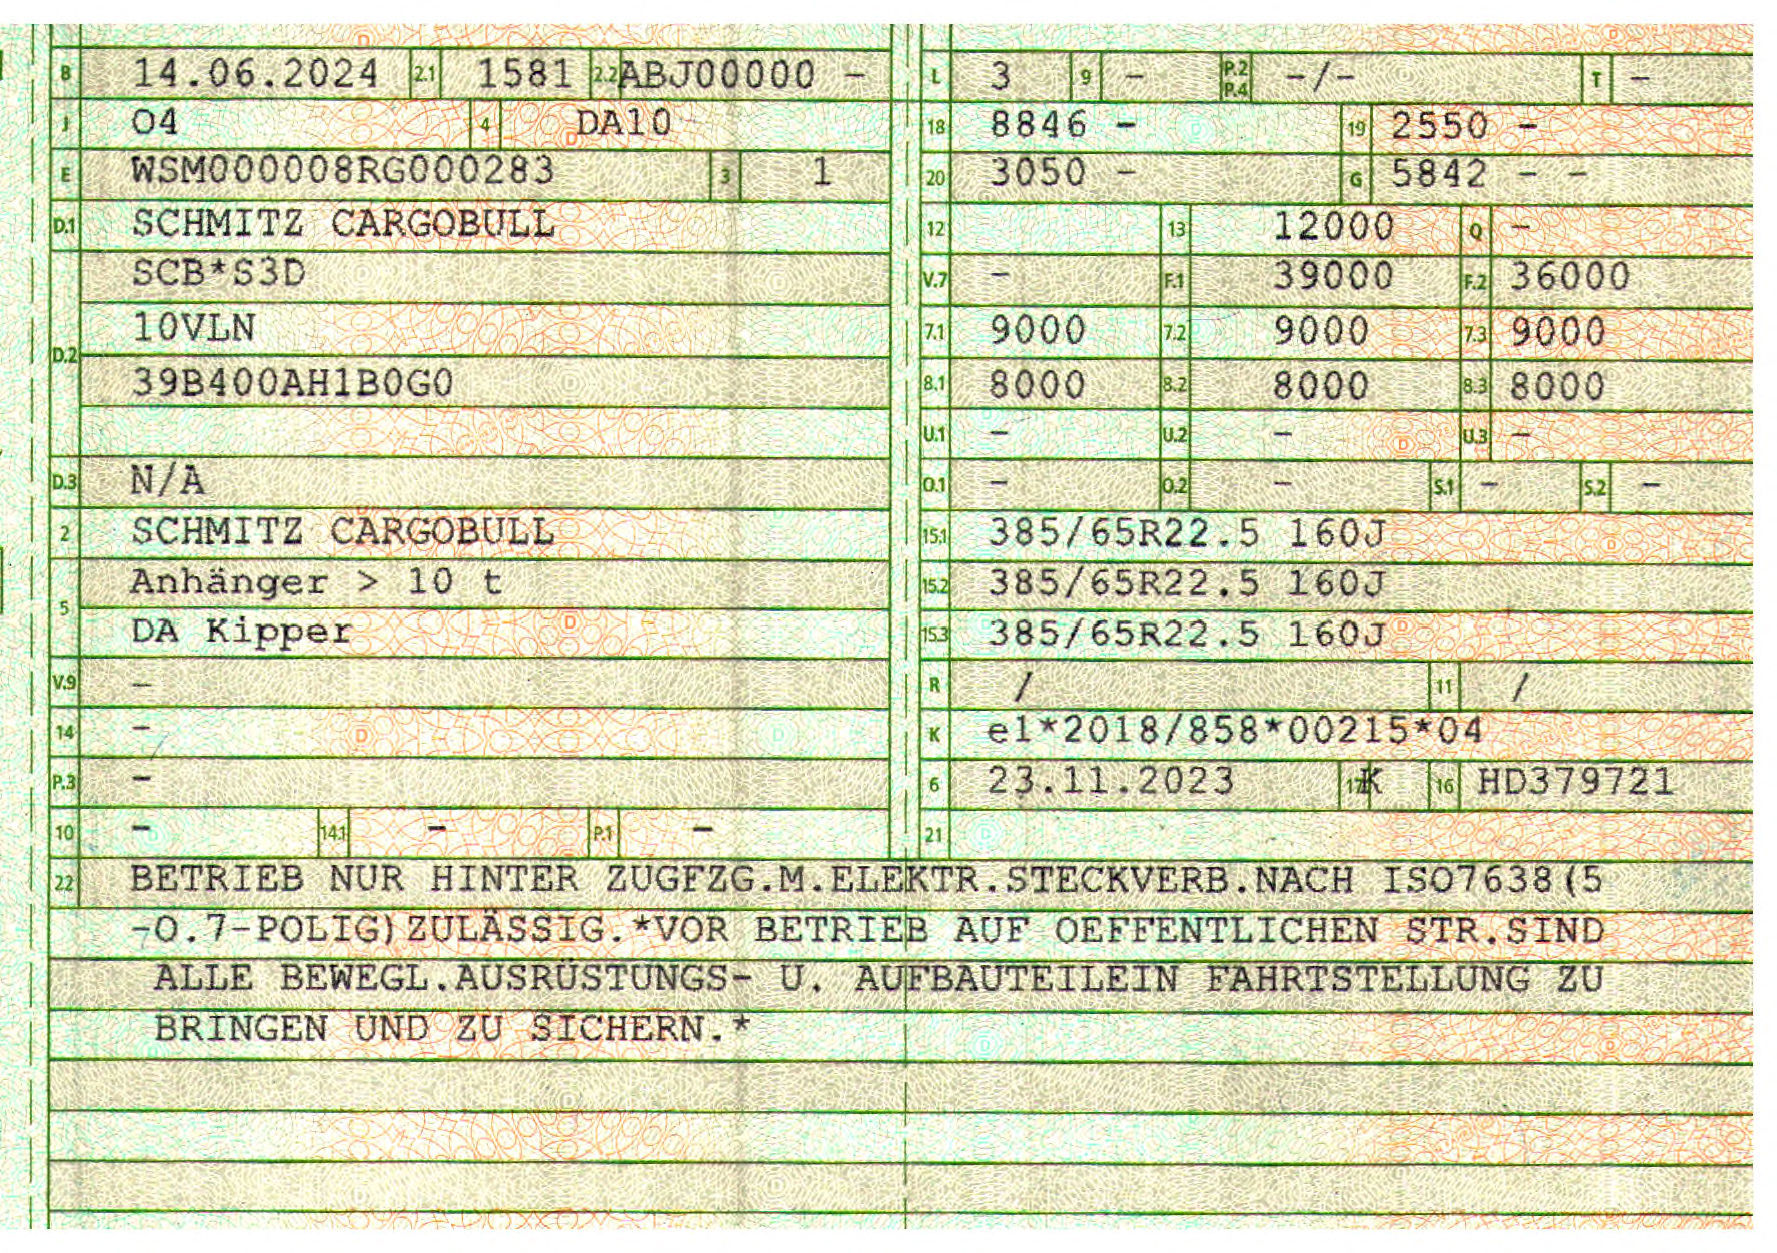 B 14.06.2024 2.1 1581 2.2 ABJ00000 -
J O4 4 DA10
E WSM000008RG000283 3 1
D.1 SCHMITZ CARGOBULL
SCB*S3D
D.2 10VLN
39B400AH1B0G0
D.3 N/A
2 SCHMITZ CARGOBULL
5 Anhänger > 10 t
DA Kipper
V.9 -
14 -
P.3 -
10 - 14.1 - P.1 -
L 3 9 - P.2 P.4 -/- T -
18 8846 - 19 2550 -
20 3050 - G 5842 - -
12 13 12000 Q -
V.7 - F.1 39000 F.2 36000
7.1 9000 7.2 9000 7.3 9000
8.1 8000 8.2 8000 8.3 8000
U.1 - U.2 - U.3 -
O.1 - O.2 - S.1 - S.2 -
15.1 385/65R22.5 160J
15.2 385/65R22.5 160J
15.3 385/65R22.5 160J
R / 11 /
K e1*2018/858*00215*04
6 23.11.2023 17 K 16 HD379721
21
22 BETRIEB NUR HINTER ZUGFZG.M.ELEKTR.STECKVERB.NACH ISO7638(5
-O.7-POLIG)ZULÄSSIG.*VOR BETRIEB AUF OEFFENTLICHEN STR.SIND
ALLE BEWEGL.AUSRÜSTUNGS- U. AUFBAUTEILEIN FAHRTSTELLUNG ZU
BRINGEN UND ZU SICHERN.*